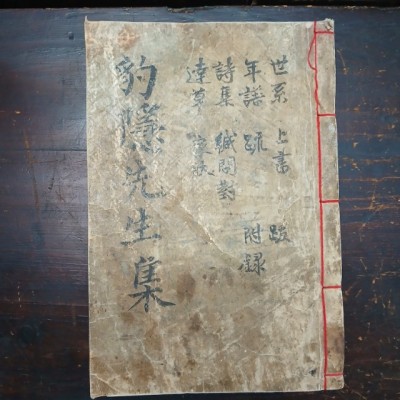 世系 上書 跋
年譜 疏 附錄
詩集 策問對
達草
豹隱先生集